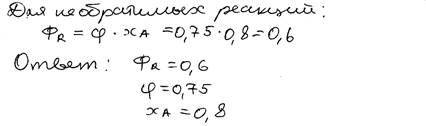 Для необратимых реакций:
Φ_R = φ · x_A = 0,75 · 0,8 = 0,6
Ответ: Φ_R = 0,6
φ = 0,75
x_A = 0,8